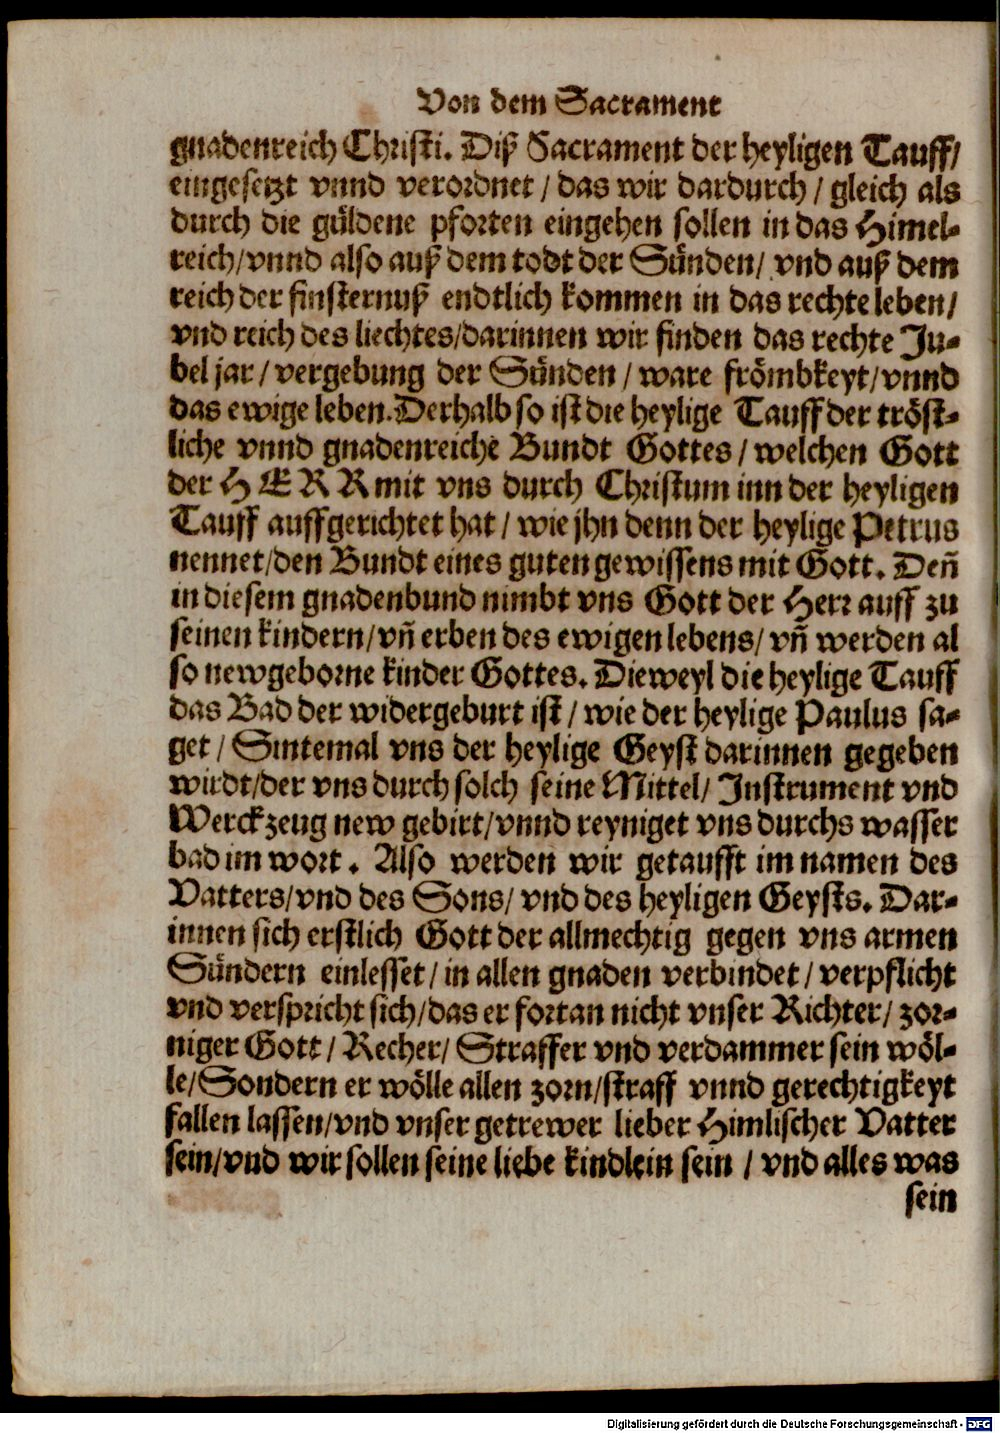 Von dem Sacrament
gnadenreich Christi. Diß Sacrament der heyligen Tauff/
eingesetzt vnnd verordnet / das wir dardurch / gleich als
durch die güldene pforten eingehen sollen in das Himel-
reich/vnnd also auß dem todt der Sünden/ vnd auß dem
reich der finsternuß endtlich kommen in das rechte leben/
vnd reich des liechtes/darinnen wir finden das rechte Ju-
bel jar / vergebung der Sünden / ware frömbkeyt/vnnd
das ewige leben. Derhalb so ist die heylige Tauff der tröst-
liche vnnd gnadenreiche Bundt Gottes / welchen Gott
der HERR mit vns durch Christum inn der heyligen
Tauff auffgerichtet hat / wie jhn denn der heylige Petrus
nennet/den Bundt eines guten gewissens mit Gott. Deñ
in diesem gnadenbund nimbt vns Gott der Herr auff zu
seinen kindern/vñ erben des ewigen lebens/ vñ werden al
so newgeborne kinder Gottes. Dieweyl die heylige Tauff
das Bad der widergeburt ist / wie der heylige Paulus sa-
get / Sintemal vns der heylige Geyst darinnen gegeben
wirdt/der vns durch solch seine Mittel/ Instrument vnd
Werckzeug new gebirt/vnnd reyniget vns durchs wasser
bad im wort. Also werden wir getaufft im namen des
Vatters/vnd des Sons/ vnd des heyligen Geysts. Dar-
innen sich erstlich Gott der allmechtig gegen vns armen
Sündern einlesset / in allen gnaden verbindet / verpflicht
vnd verspricht sich/das er fortan nicht vnser Richter/ zor-
niger Gott / Recher/ Straffer vnd verdammer sein wöl-
le/Sondern er wölle allen zorn/straff vnnd gerechtigkeyt
fallen lassen/vnd vnser getrewer lieber Himlischer Vatter
sein/vnd wir sollen seine liebe kindlein sein / vnd alles was
sein
Digitalisierung gefördert durch die Deutsche Forschungsgemeinschaft - DFG